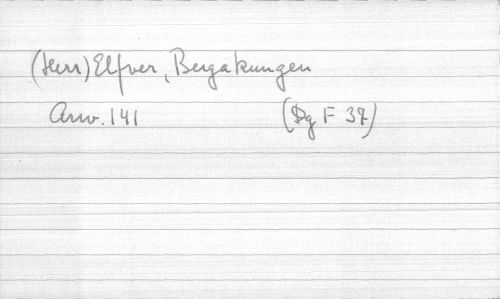 (Herr) Elfver, Bergakungen
Arw. 141 (Dg F 37)